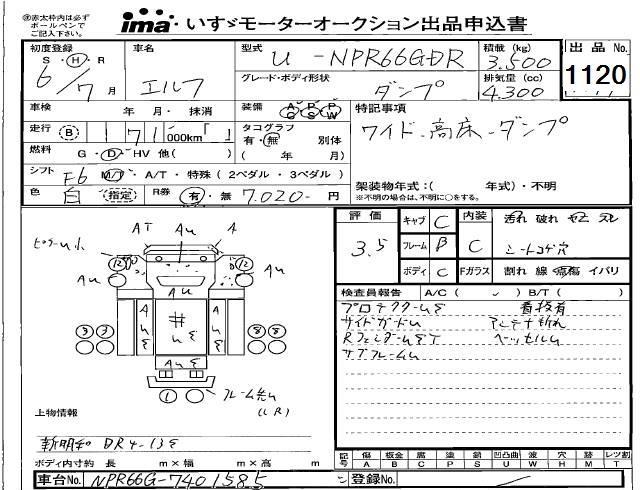 ※赤太枠内は必ず
ボールペンで
ご記入下さい。
ima いすゞモーターオークション出品申込書
初度登録
S・H・R
6/7月
車名
エルフ
型式
U-NPR66GDR
積載(kg)
3.500
出品No.
1120
グレード・ボディ形状
ダンプ
排気量(cc)
4.300
車検
年 月・抹消
装備
AC PS PW
特記事項
ワイド-高床-ダンプ
走行
B 171,000km「 」
タコグラフ
有・無 別体
( 年 月)
燃料
G・D・HV 他( )
シフト
F6 M/T・A/T・特殊(2ペダル・3ペダル)
架装物年式:( 年式)・不明
※不明の場合は、不明に○をする。
色
白 (指定)
R券
有・無 7.020-円
評価
3.5
キャブ C
フレーム B
ボディ C
内装 C
Fガラス
汚れ 破れ
シートコゲ穴
割れ 線 飛傷 イバリ
検査員報告
A/C( ✓ ) B/T( )
サイドガードu
看板有
アンテナ折れ
サブフレームu
ベッセルu
AT Au A
12 12
Au Au
Au
3 3
8 8
1
フレーム先u
(LR)
上物情報
新明和 DR4-13
ボディ内寸約 長 m×幅 m×高 m
記号
傷 A
板金 B
腐 C
塗 P
錆 S
凹凸曲 U
波 W
穴 H
時 M
レツ割 T
車台No. NPR66G-7401585
登録No.